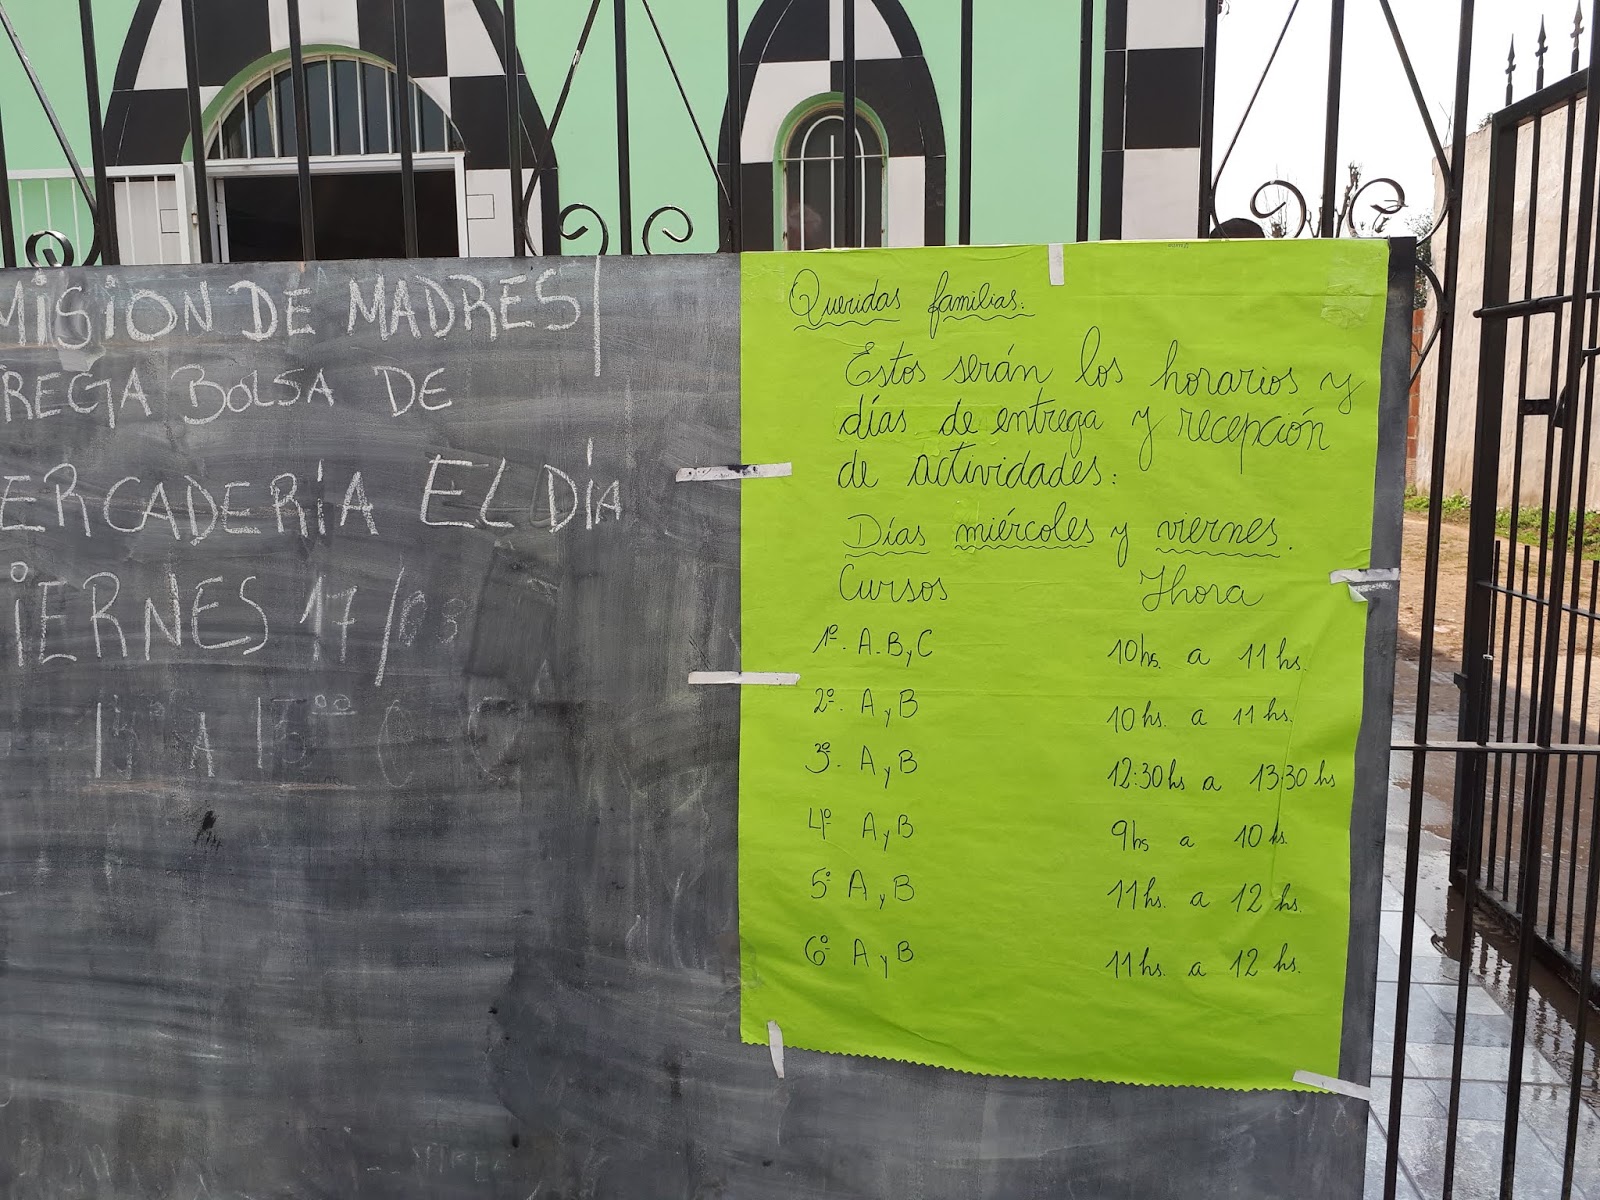 MISION DE MADRES
REGA BOLSA DE
ERCADERÍA EL DÍA
IERNES 17/03
A
Queridas familias:
Estos serán los horarios y
días de entrega y recepción
de actividades:
Días miércoles y viernes.
Cursos Hora
1º. A.B y C 10hs. a 11 hs.
2º. A y B 10 hs. a 11 hs.
3º. A y B 12:30hs a 13:30 hs
4º A y B 9hs a 10 hs.
5º A y B 11hs. a 12 hs.
6º A y B 11 hs. a 12 hs.